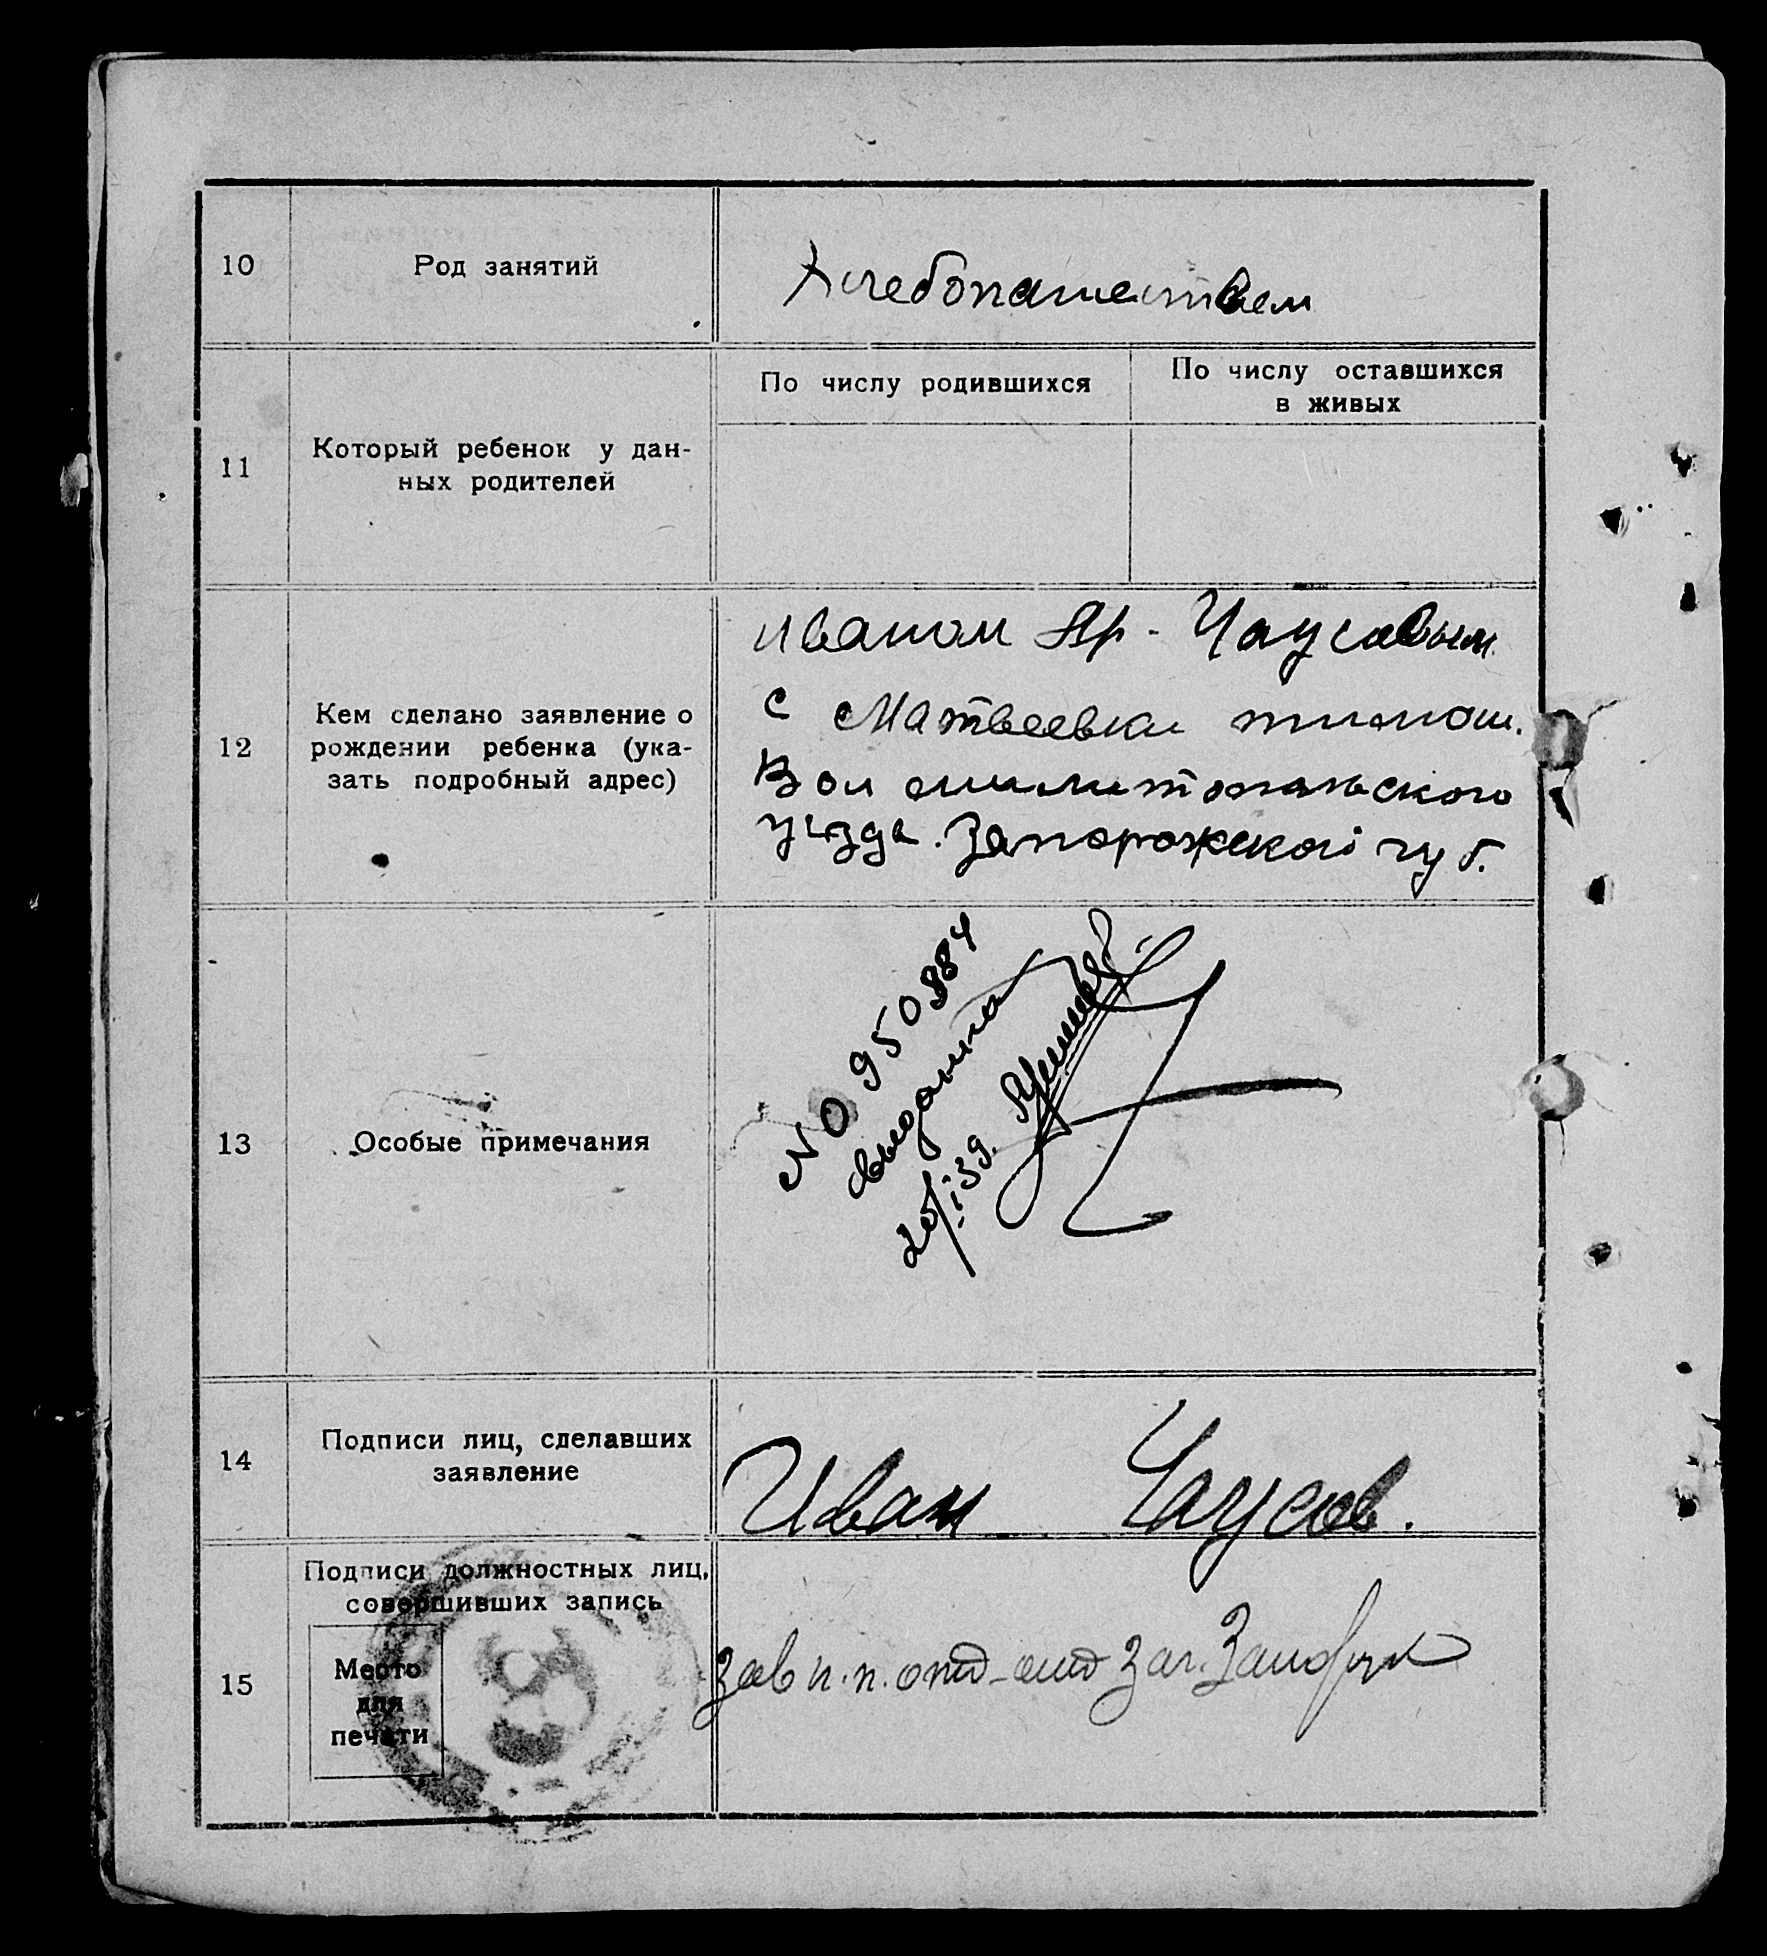 10 Род занятий Хлебопашеством
11 Который ребенок у дан-
ных родителей
По числу родившихся
По числу оставшихся
в живых
12 Кем сделано заявление о
рождении ребенка (ука-
зать подробный адрес)
Иваном Яр. Чаусовым
с Матвеевки тимош.
Вол милитопальского
уезда. Запорожской губ.
13 Особые примечания
NO 950884
выдана
14 Подписи лиц, сделавших
заявление
Иван Чаусов.
15 Подписи должностных лиц,
совершивших запись
Место
для
печати
Зав п.п. отд